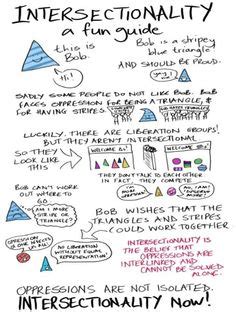 INTERSECTIONALITY
a fun guide
this is
Bob.
Hi!
Bob is a stripey
blue triangle
AND SHOULD BE PROUD.
yay, me!
SADLY SOME PEOPLE DO NOT LIKE BOB. BOB
FACES OPPRESSION FOR BEING A TRIANGLE, &
FOR HAVING STRIPES.
LUCKILY, THERE ARE LIBERATION GROUPS!
BUT THEY AREN'T INTERSECTIONAL.
SO THEY
LOOK LIKE
THIS
THEY DON'T TALK TO EACH OTHER
IN FACT, THEY COMPETE
BOB CAN'T WORK
OUT WHERE TO
GO
AM I MORE
STRIPE OR
TRIANGLE?
BOB WISHES THAT THE
TRIANGLES AND STRIPES
COULD WORK TOGETHER
NO LIBERATION
WITHOUT EQUAL
REPRESENTATION!
INTERSECTIONALITY IS
THE BELIEF THAT
OPPRESSIONS ARE
INTERLINKED AND
CANNOT BE SOLVED
ALONE.
OPPRESSIONS ARE NOT ISOLATED.
INTERSECTIONALITY NOW!